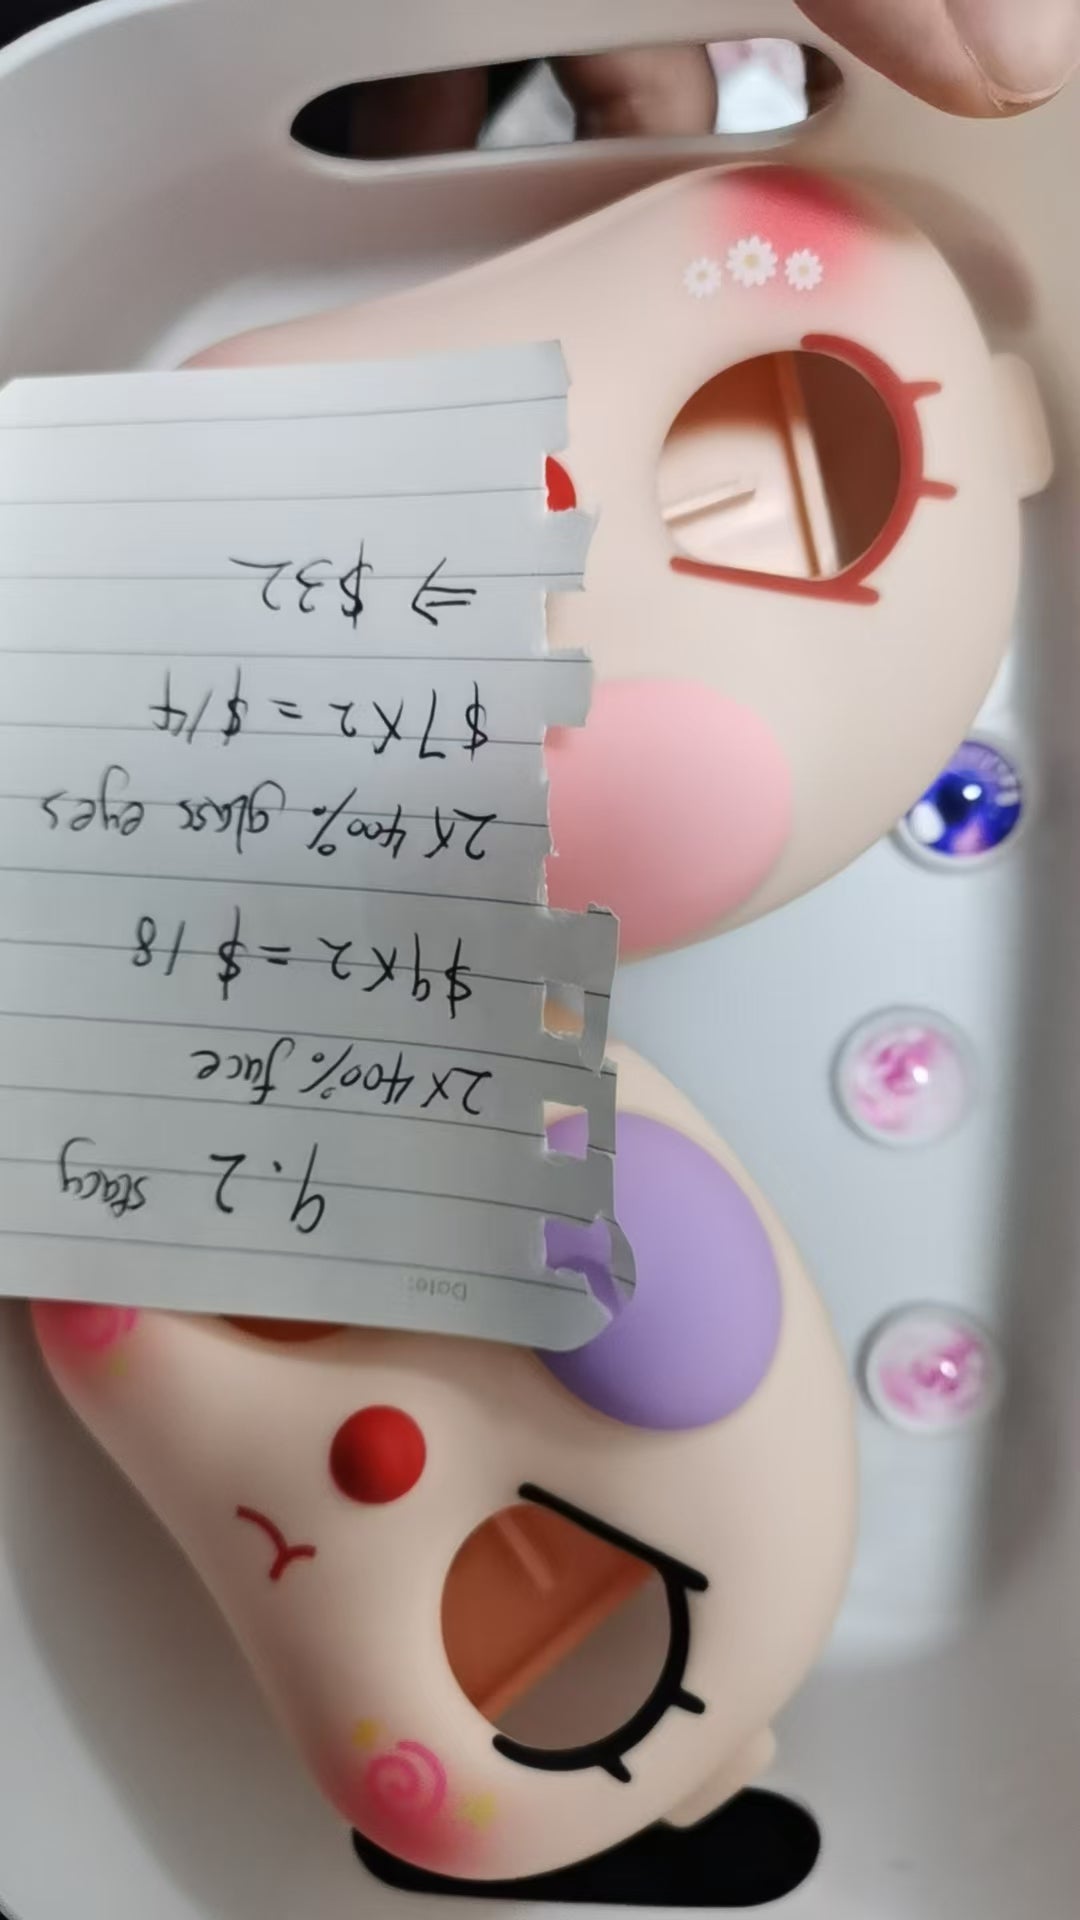 Date:
9.2 stacy
2x 400% face
$9x2 = $18
2x 400% glass eyes
$7x2 = $14
⇒ $32